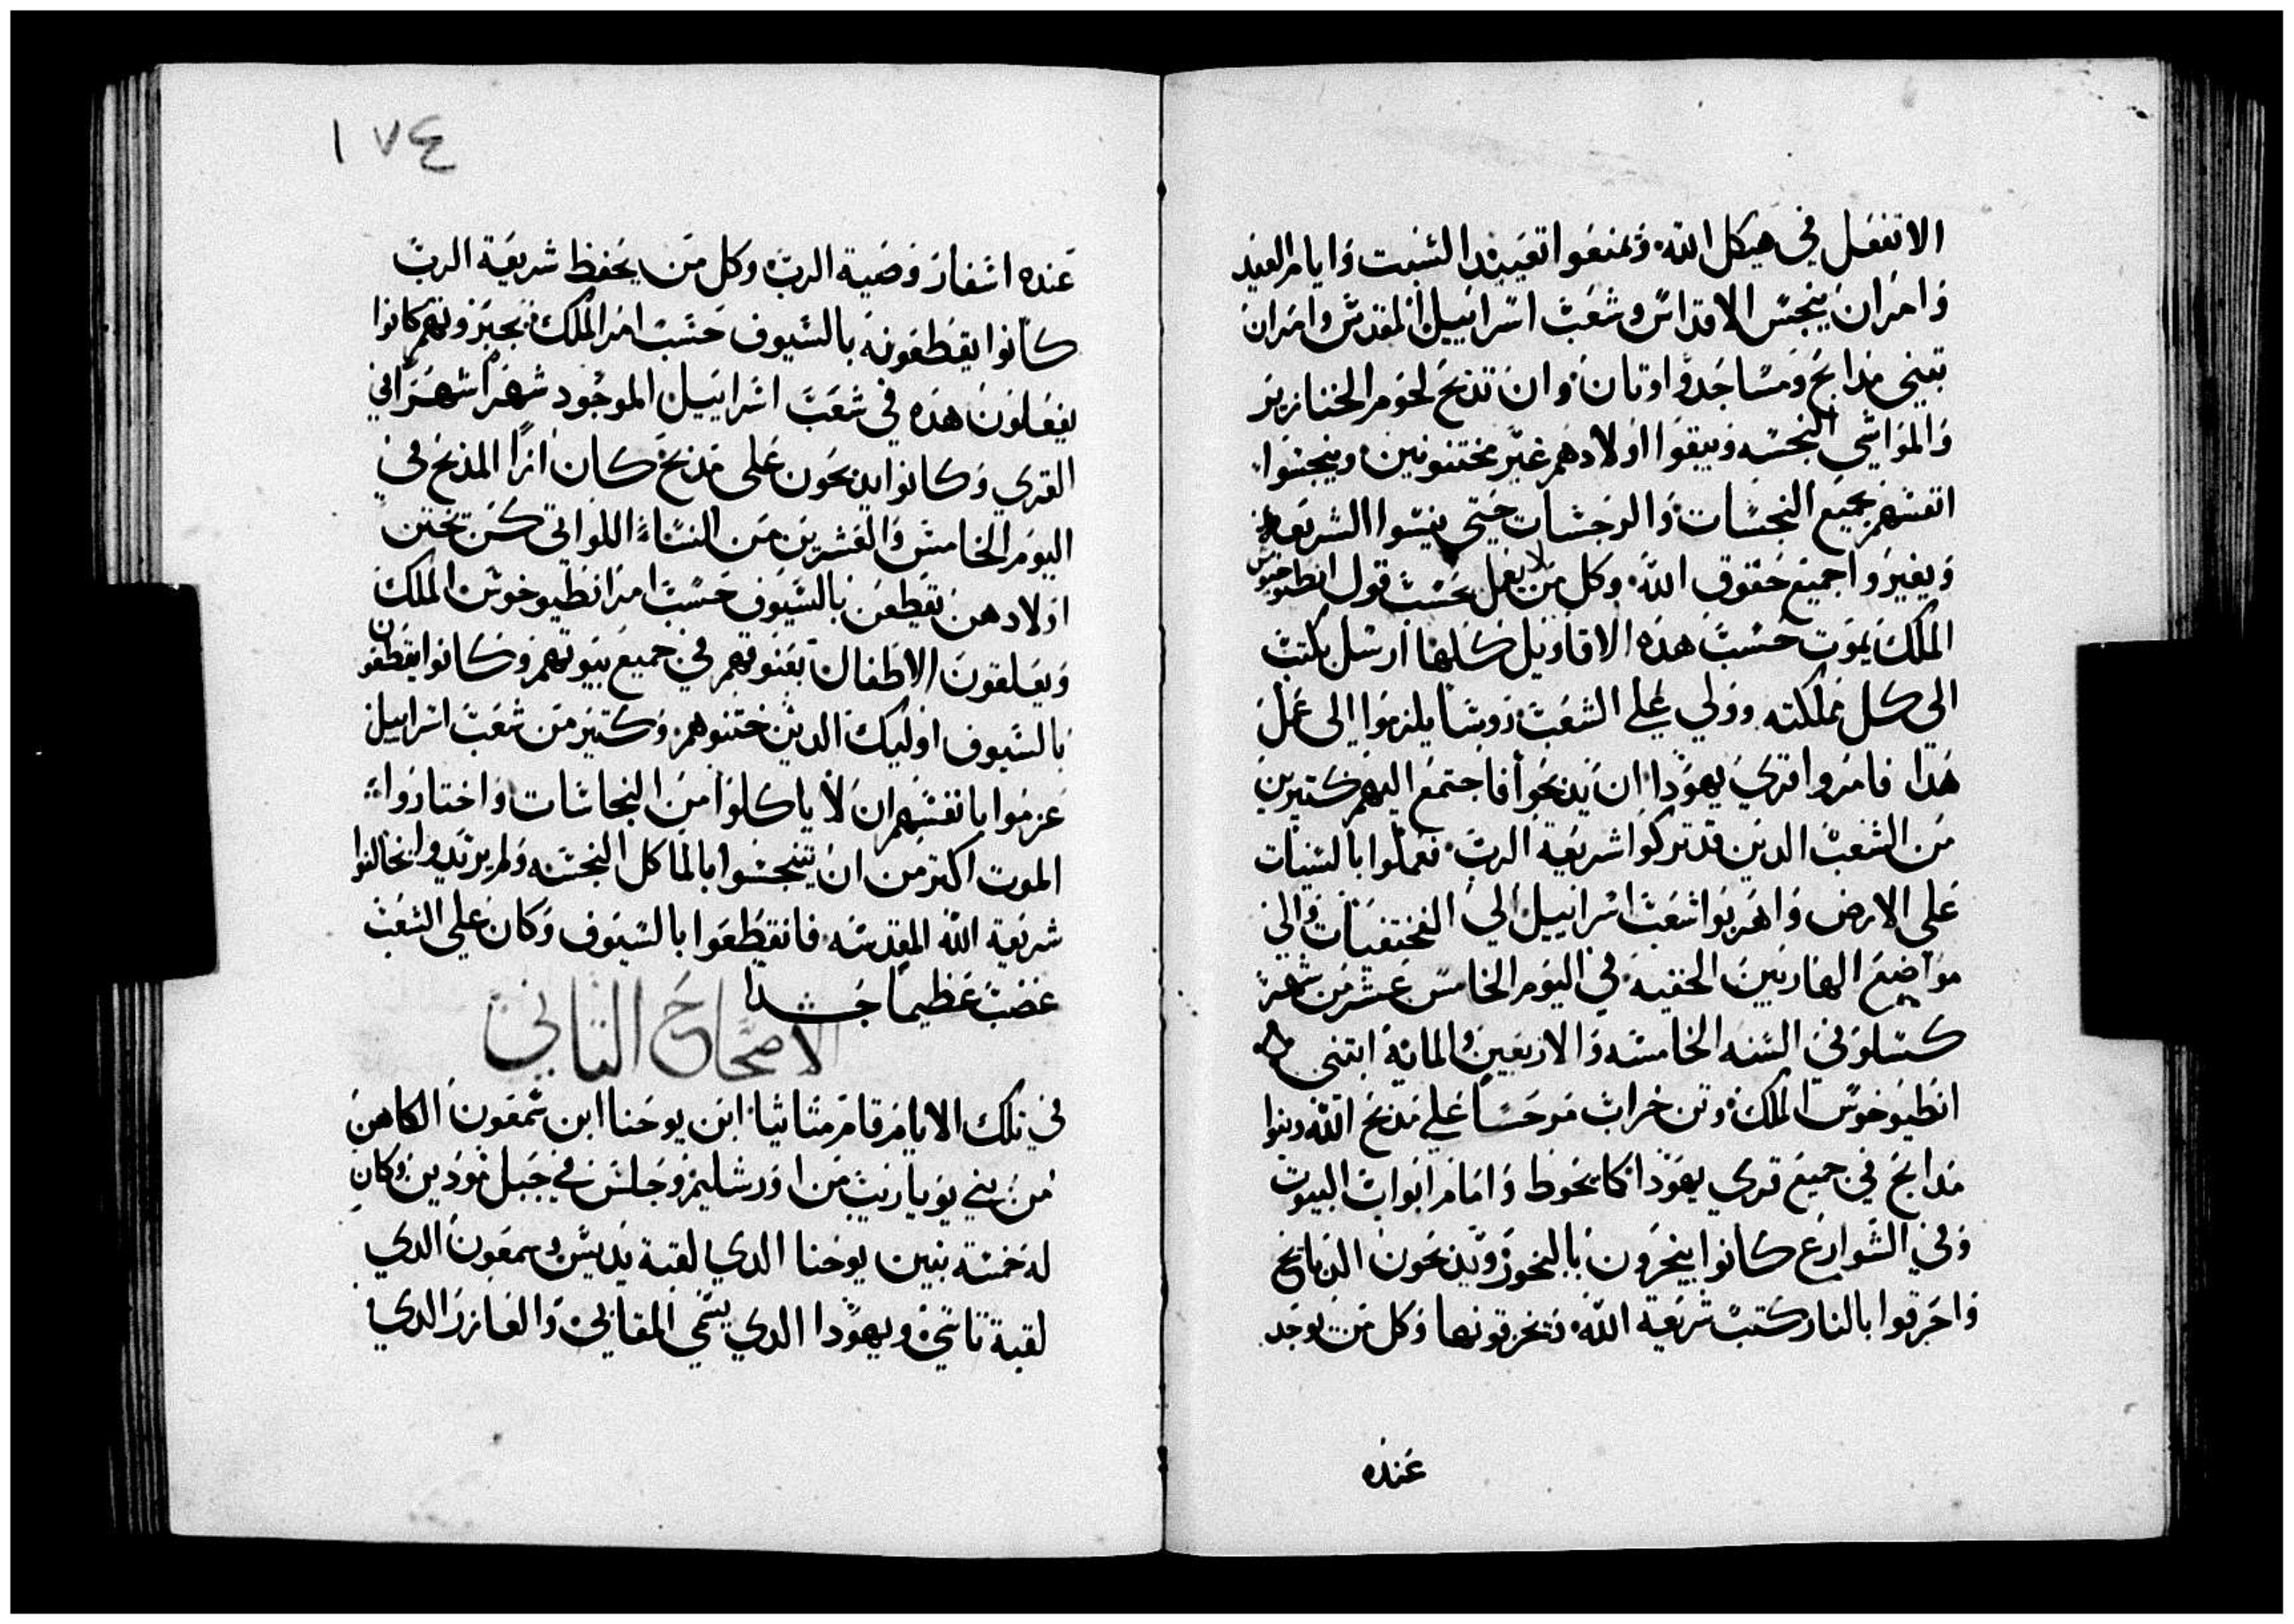 الا تفعل في هيكل الله. ويمنعوا تعييد السبت وايام العيد
وامر ان ينجس الاقداس وشعب اسراييل المقدس وامر ان
تبني مدابح ومساجد واوتان. وان تدبح لحوم الخنازير
والمواشي النجسه ويبقوا اولادهم غير مختونين. وينجسوا
انفسهم بجميع النجسات والرجسات حتي ينسوا الشريعه
ويغيروا جميع حقوق الله. وكل من لا يعمل بحسب قول انطيوخوس
الملك يموت حسب هده الاقاويل كلها ارسل يكتب
الي كل مملكته وولي علي الشعب روسا يلزموا الي عمل
هدا فامروا قري يهودا ان يدبحوا فاجتمع اليهم كتيرين
من الشعب الدين قد تركوا شريعة الرب. فعملوا بالسيات
علي الارض واهربوا شعب اسراييل الي المختفيات والي
مواضع الهاربين الخفيه. في اليوم الخامس عشر من شهر
كسلو في السنه الخامسه والاربعين والماية ابتني
انطيوخوس الملك وتن خراب مرجسا علي مدبح الله وبنوا
مدابح في جميع قري يهودا كما يحوط وامام ابواب البيوت
وفي الشوارع كانوا يبخرون بالبخور ويدبحون الدبايح
واحرقوا بالنار كتب شريعة الله. ويخرقونها وكل من يوجد
عنده
١٧٤
عنده اسفار وصية الرب وكل من يحفظ شريعة الرب
كانوا يقطعونه بالسيوف حسب امر الملك بجبروتهم كانوا
يفعلون هده في شعب اسراييل الموجود شهرا شهرا في
القري وكانوا يدبحون علي مدبح كان ازا المدبح في
اليوم الخامس والعشرين من النساء اللواتي كن تختن
اولادهن يقطعن بالسيوف حسب امر انطيوخوس الملك
ويعلقون الاطفال بعنوقهم في جميع بيوتهم وكانوا يقطعون
بالسيوف اوليك الدين ختنوهم وكتير من شعب اسراييل
عزموا بانفسهم ان لا ياكلوا من النجاسات واختاروا
الموت اكتر من ان يتنجسوا بالماكل النجسه ولم يريدوا يخالفوا
شريعة الله المقدسه فانقطعوا بالسيوف وكان علي الشعب
غضب عظيما جدا
الاصحاح التاني
في تلك الايام قام متاتيا ابن يوحنا ابن شمعون الكاهن
من بني يوياريب من اورشليم وجلس في جبل مودين وكان
له خمسة بنين يوحنا الدي لقبه يديس وسمعون الدي
لقبه تاسي ويهودا الدي يسمي المقابي والعازر الدي